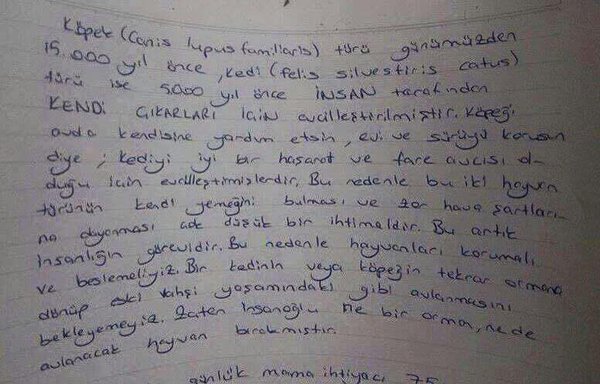 Köpek (Canis lupus familiaris) türü günümüzden
15.000 yıl önce, kedi (felis silvestiris catus)
türü ise 5000 yıl önce İNSAN tarafından
KENDİ ÇIKARLARI İÇİN evcilleştirilmiştir. Köpeği
avda kendisine yardım etsin, evi ve sürüyü korusun
diye ; kediyi iyi bir haşarat ve fare avcısı ol-
duğu için evcilleştirmişlerdir. Bu nedenle bu iki hayvan
türünün kendi yemeğini bulması ve zor hava şartları-
na dayanması çok düşük bir ihtimaldir. Bu artık
insanlığın görevidir. Bu nedenle hayvanları korumalı
ve beslemeliyiz. Bir kedinin veya köpeğin tekrar ormana
dönüp eski vahşi yaşamındaki gibi avlanmasını
bekleyemeyiz. Zaten insanoğlu ne bir orman, ne de
avlanacak hayvan bırakmıştır.
günlük mama ihtiyacı 75